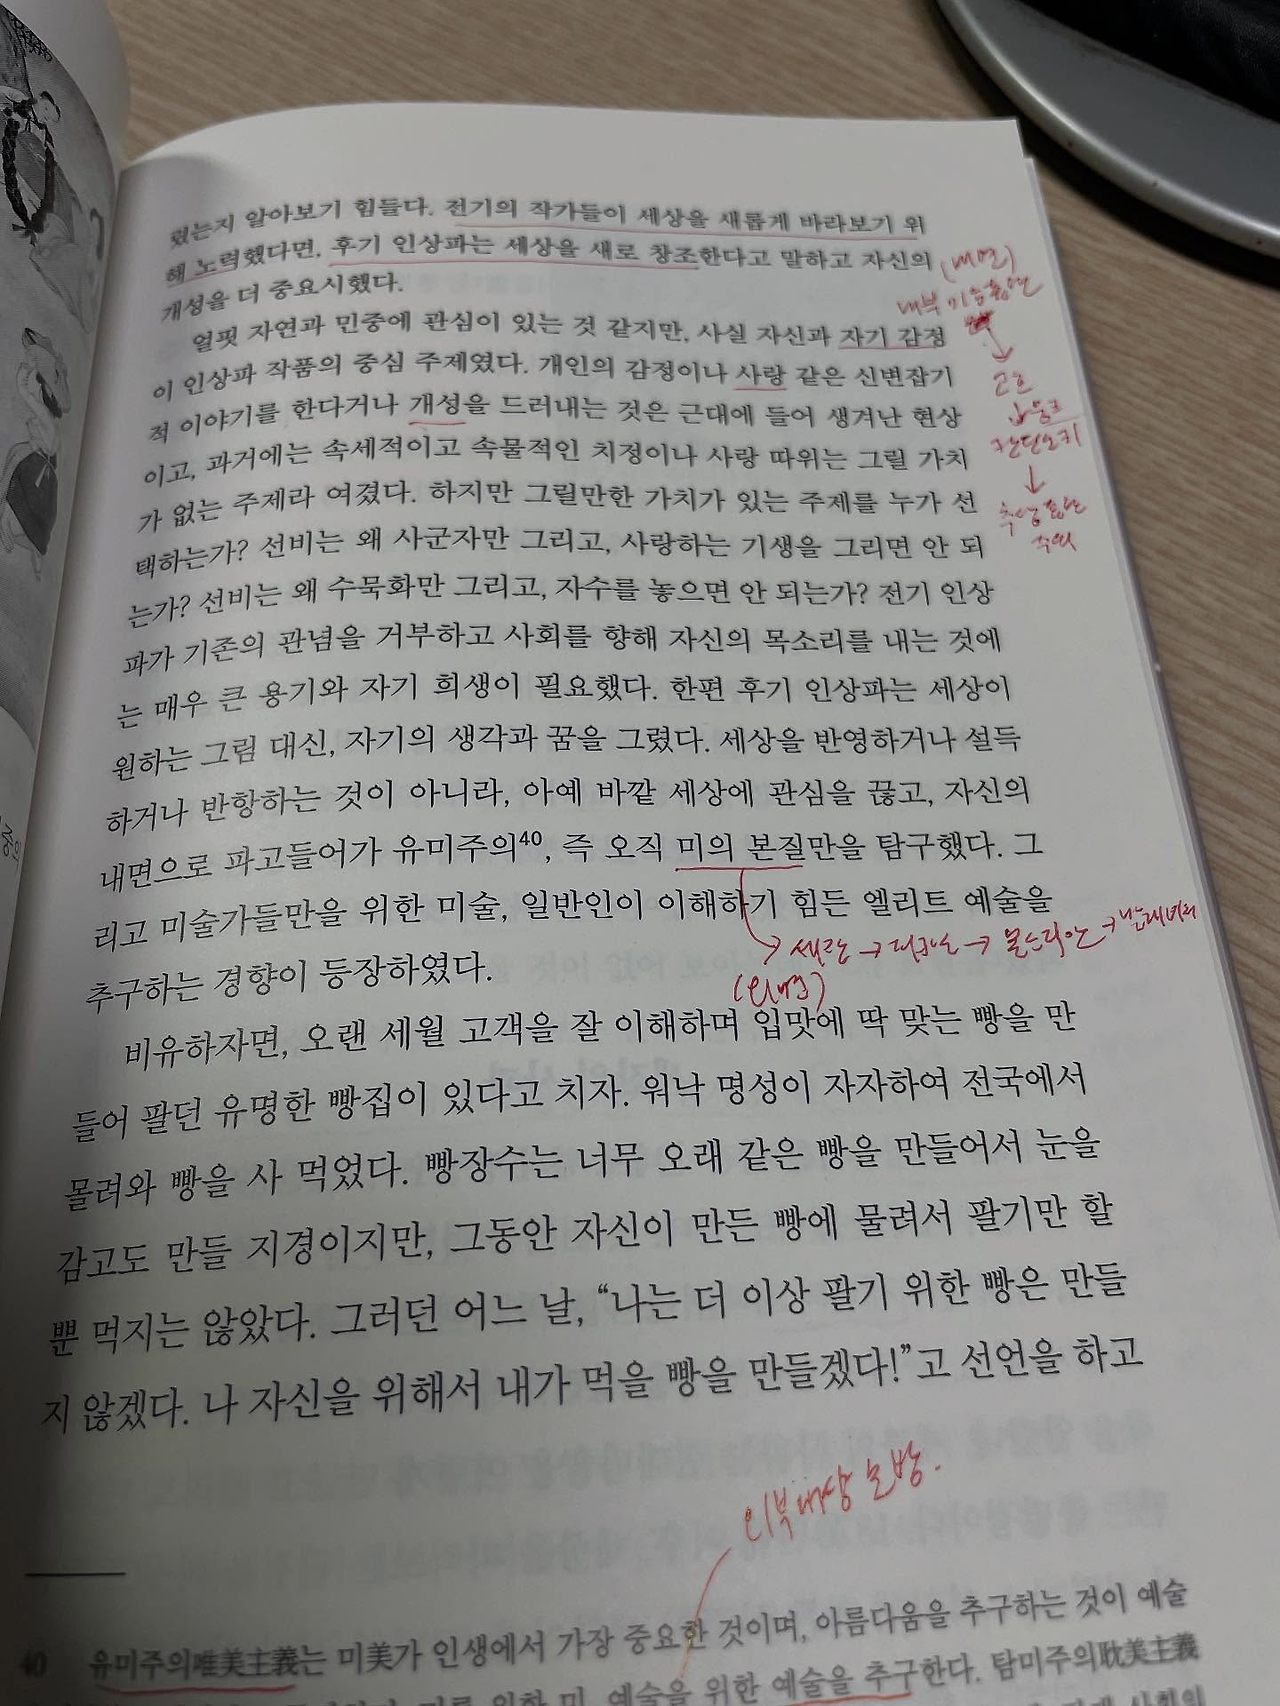 렸는지 알아보기 힘들다. 전기의 작가들이 세상을 새롭게 바라보기 위
해 노력했다면, 후기 인상파는 세상을 새로 창조한다고 말하고 자신의
개성을 더 중요시했다.
(내면)
내부
얼핏 자연과 민중에 관심이 있는 것 같지만, 사실 자신과 자기 감정
이 인상파 작품의 중심 주제였다. 개인의 감정이나 사랑 같은 신변잡기
고흐
적 이야기를 한다거나 개성을 드러내는 것은 근대에 들어 생겨난 현상
뭉크
칸딘스키
이고, 과거에는 속세적이고 속물적인 치정이나 사랑 따위는 그릴 가치
가 없는 주제라 여겼다. 하지만 그릴만한 가치가 있는 주제를 누가 선
추상표현
주의
택하는가? 선비는 왜 사군자만 그리고, 사랑하는 기생을 그리면 안 되
는가? 선비는 왜 수묵화만 그리고, 자수를 놓으면 안 되는가? 전기 인상
파가 기존의 관념을 거부하고 사회를 향해 자신의 목소리를 내는 것에
는 매우 큰 용기와 자기 희생이 필요했다. 한편 후기 인상파는 세상이
원하는 그림 대신, 자기의 생각과 꿈을 그렸다. 세상을 반영하거나 설득
하거나 반항하는 것이 아니라, 아예 바깥 세상에 관심을 끊고, 자신의
내면으로 파고들어가 유미주의40, 즉 오직 미의 본질만을 탐구했다. 그
리고 미술가들만을 위한 미술, 일반인이 이해하기 힘든 엘리트 예술을
→ 세잔 → 피카소 → 몬드리안 →
추구하는 경향이 등장하였다.
(외면)
비유하자면, 오랜 세월 고객을 잘 이해하며 입맛에 딱 맞는 빵을 만
들어 팔던 유명한 빵집이 있다고 치자. 워낙 명성이 자자하여 전국에서
몰려와 빵을 사 먹었다. 빵장수는 너무 오래 같은 빵을 만들어서 눈을
감고도 만들 지경이지만, 그동안 자신이 만든 빵에 물려서 팔기만 할
뿐 먹지는 않았다. 그러던 어느 날, “나는 더 이상 팔기 위한 빵은 만들
지 않겠다. 나 자신을 위해서 내가 먹을 빵을 만들겠다!”고 선언을 하고
외부대상 모방.
40 유미주의唯美主義는 미美가 인생에서 가장 중요한 것이며, 아름다움을 추구하는 것이 예술
위한 미, 예술을 위한 예술을 추구한다. 탐미주의耽美主義